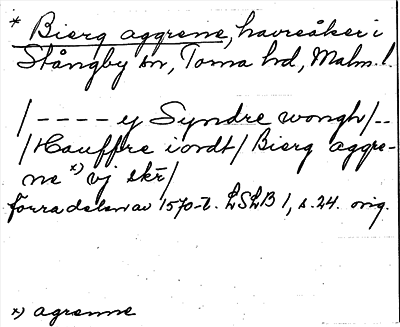 * Bierg aggrene, havreåker i
Stångby sn, Torna hd, Malm. l.
/ - - - - y Syndre wongh / - -
/ Hauffre iordt / Bierg aggre-
ne x) vj skr /
Jorradelen av 1570-t. LSLB 1, s. 24. orig.
x) agrenne